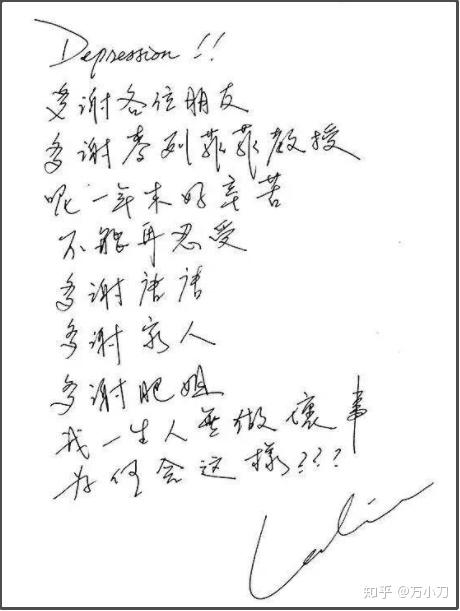 Depression!!
多謝各位朋友
多謝麥列菲菲教授
呢一年来好辛苦
不能再忍受
多謝唐唐
多謝家人
多謝肥姐
我一生人無做壞事
为何会这樣???
Leslie
知乎 @万小刀